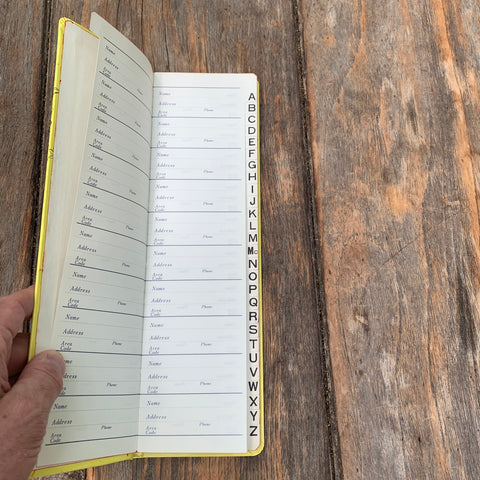 Name
Address
Area
Code
Name
Address
Area
Code
Name
Address
Area
Code
Name
Address
Area
Code
Name
Address
Area
Code
Name
Address
Area
Code
Name
Address
Area
Code Phone
Name
Address
Area
Code Phone
Name
Address
Area
Code Phone
Name
Address
Area
Code Phone
Name
Address
Area
Code Phone
Name
Address
Area
Code Phone
Name
Address
Area
Code Phone
Name
Address
Area
Code Phone
Name
Address
Area
Code Phone
Name
Address
Area
Code Phone
Name
Address
Area
Code Phone
Name
Address
Area
Code Phone
Name
Address
Area
Code Phone
A
B
C
D
E
F
G
H
I
J
K
L
M
Mc
N
O
P
Q
R
S
T
U
V
W
X
Y
Z